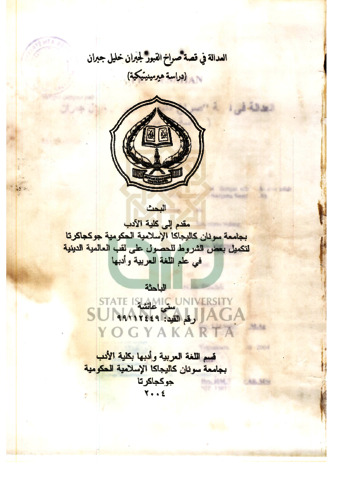 العدالة في قصة "صراخ القبور" لجبران خليل جبران
(دراسة هيرمينيتيكية)
البحث
مقدم إلى كلية الأدب
بجامعة سونان كاليجاكا الإسلامية الحكومية جوكجاكرتا
لتكميل بعض الشروط للحصول على لقب العالمية الدينية
في علم اللغة العربية وأدبها
الباحثة
STATE ISLAMIC UNIVERSITY
ستي عائشة
SUNAN KALIJAGA
رقم القيد: ٩٩١١٢٤٤٩
YOGYAKARTA
قسم اللغة العربية وأدبها بكلية الأدب
بجامعة سونان كاليجاكا الإسلامية الحكومية
جوكجاكرتا
٢٠٠٤